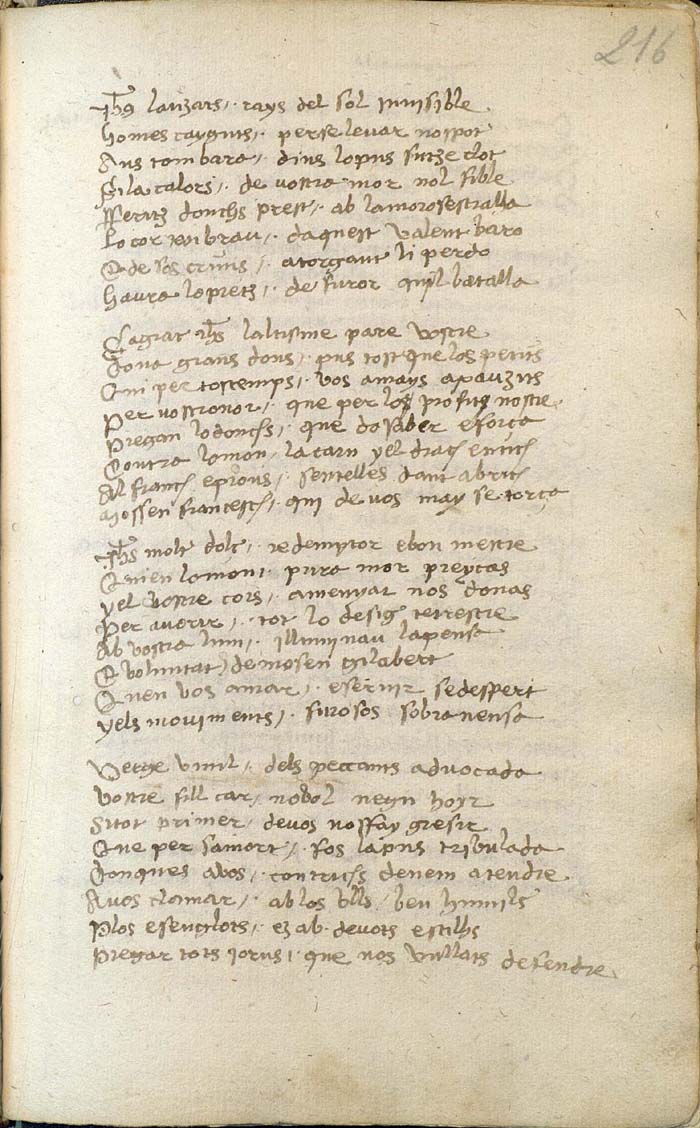 216
Jhs lanzars / rays del sol invisible
homes cayguts / per se levar no spot
Ans tombara / dins lo pus sutze clot
Si la calors / de vostra mor nol sible
fferitz donchs prest / ab la morosestralla
Lo cor tan brau / daquest valent baro
E de sos crims / atorgant li perdo
haura lo pretz / de furor quil batalla
Sagrat Jhs laltisme pare vostre
dona grans dons / pus tost que los petits
Qui per tostemps / vos a mays apauzits
Per vostronor / que per los profits nostre
Pregan lo donchs / que do saber e força
Contra lo mon / la carn yel drach entich
Al franch e pros / sentelles dant abrich
Mossen francesch / qui de vos may se torça
Jhs molt dolç / redemptor e bon mestre
Quien lo mon / pura mor preycas
yel vostre cors / a menyar nos donas
Per avorir / tot lo desig terrestre
Ab vostra lum / illuminau la pensa
E voluntat / de mosen gilabert
Quen vos amar / e servir se despert
yels moviments / furosos sobra vensa
Verge humil / dels peccants advocada
Vostre fill car / no vol neyn hoyr
Si tot primer / de vos nos fay gresir
Que per sa mort / fos la pus tribulada
donques a vos / contrichs devem atendre
A vos clamar / ab los hulls ben humils
Plos e senglots / ez ab devots estilhs
Pregar tots jorns / que nos vullats defendre